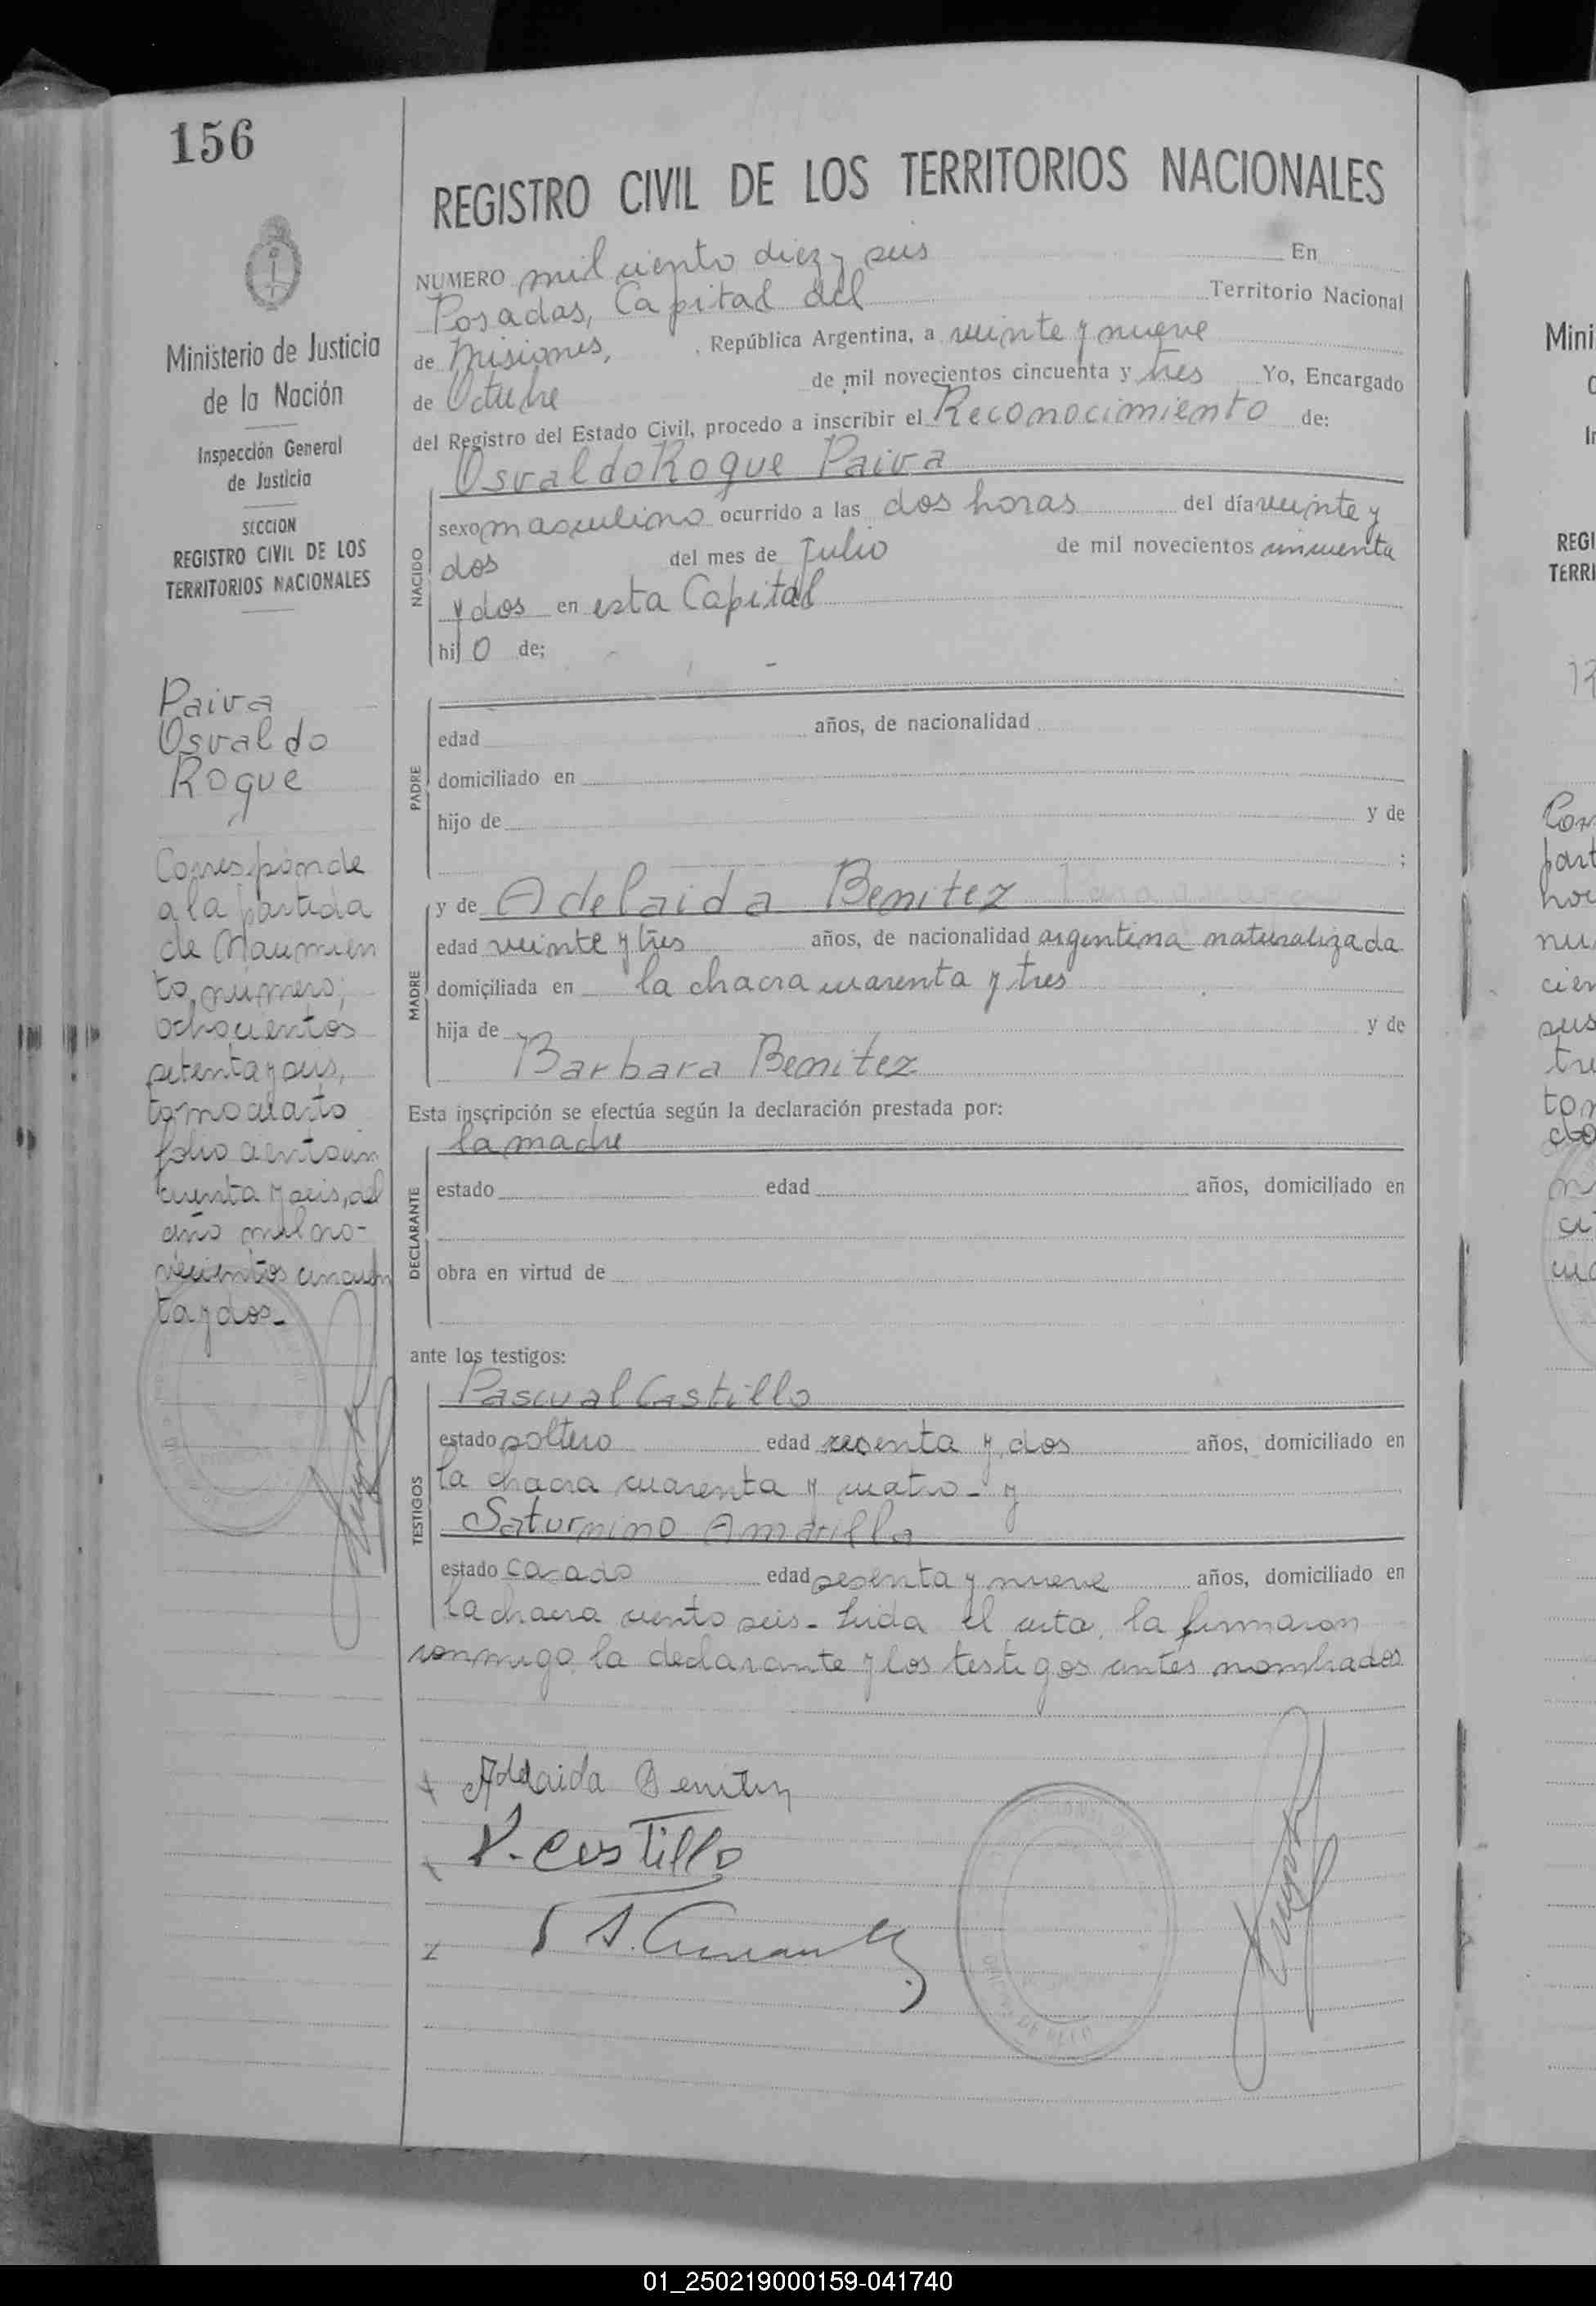 156
REGISTRO CIVIL DE LOS TERRITORIOS NACIONALES
Ministerio de Justicia
de la Nación
Inspección General
de Justicia
SECCION
REGISTRO CIVIL DE LOS
TERRITORIOS NACIONALES
Paiva
Osvaldo
Roque
Corresponde
a la partida
de Nacimien
to, número,
ochocientos
setenta y seis,
tomo cuarto
folio ciento cin
cuenta y seis, del
año mil no-
vecientos cincuen
ta y dos-
NUMERO mil ciento diez y seis En
Posadas, Capital del Territorio Nacional
de Misiones, República Argentina, a veinte y nueve
de Octubre de mil novecientos cincuenta y tres Yo, Encargado
del Registro del Estado Civil, procedo a inscribir el Reconocimiento de:
NACIDO
Osvaldo Roque Paiva
sexo masculino ocurrido a las dos horas del día veinte y
dos del mes de Julio de mil novecientos cincuenta
y dos en esta Capital
hijo de;
PADRE
edad años, de nacionalidad
domiciliado en
hijo de y de
;
MADRE
y de Adelaida Benitez
edad veinte y tres años, de nacionalidad argentina naturalizada
domiciliada en la chacra cuarenta y tres
hija de y de
Barbara Benitez
Esta inscripción se efectúa según la declaración prestada por:
DECLARANTE
la madre
estado edad años, domiciliado en
obra en virtud de
ante los testigos:
TESTIGOS
Pascual Castillo
estado soltero edad sesenta y dos años, domiciliado en
la chacra cuarenta y cuatro- y
Saturnino Amarilla
estado casado edad sesenta y nueve años, domiciliado en
la chacra ciento seis- Leida el acta, la firmaron
conmigo la declarante y los testigos antes nombrados
Adelaida Benitez
P. Castillo
Mini
REGI
TERRI
01_250219000159-041740